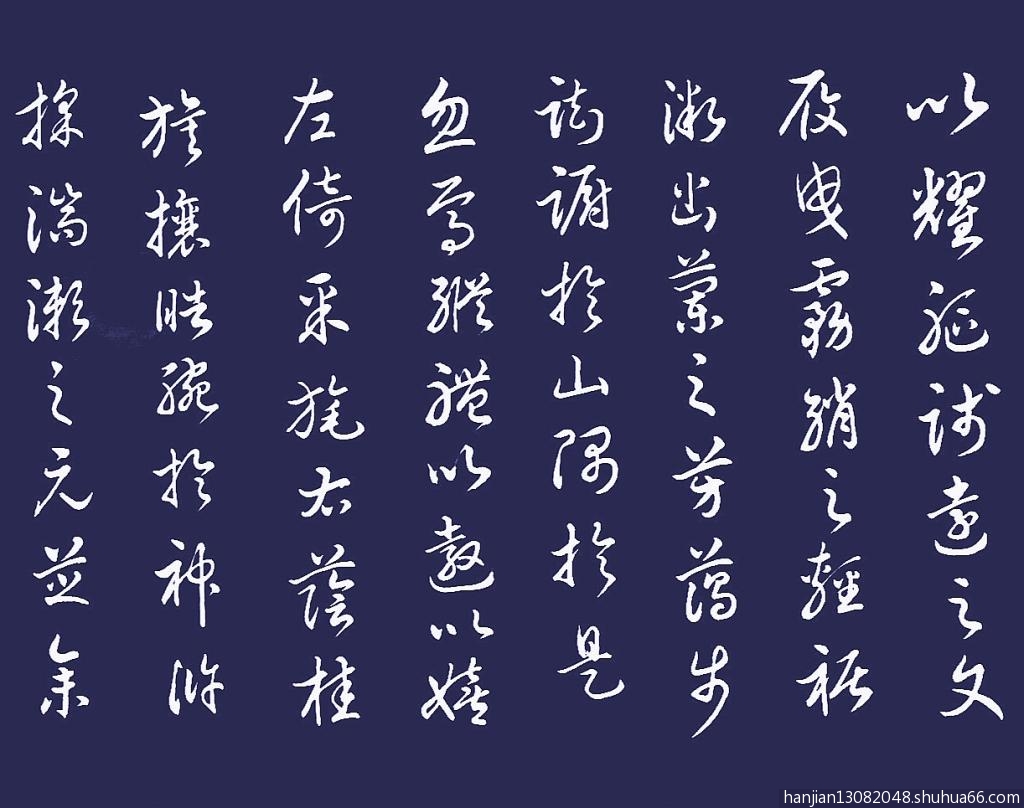 以耀軀踐遠之文
履曳霧綃之輕裾
微幽蘭之芳藹步
踟躕於山隅於是
忽焉縱體以遨以嬉
左倚采旄右蔭桂
旗攘皓腕於神滸
採湍瀨之玄芝余
hanjian13082048.shuhua66.com